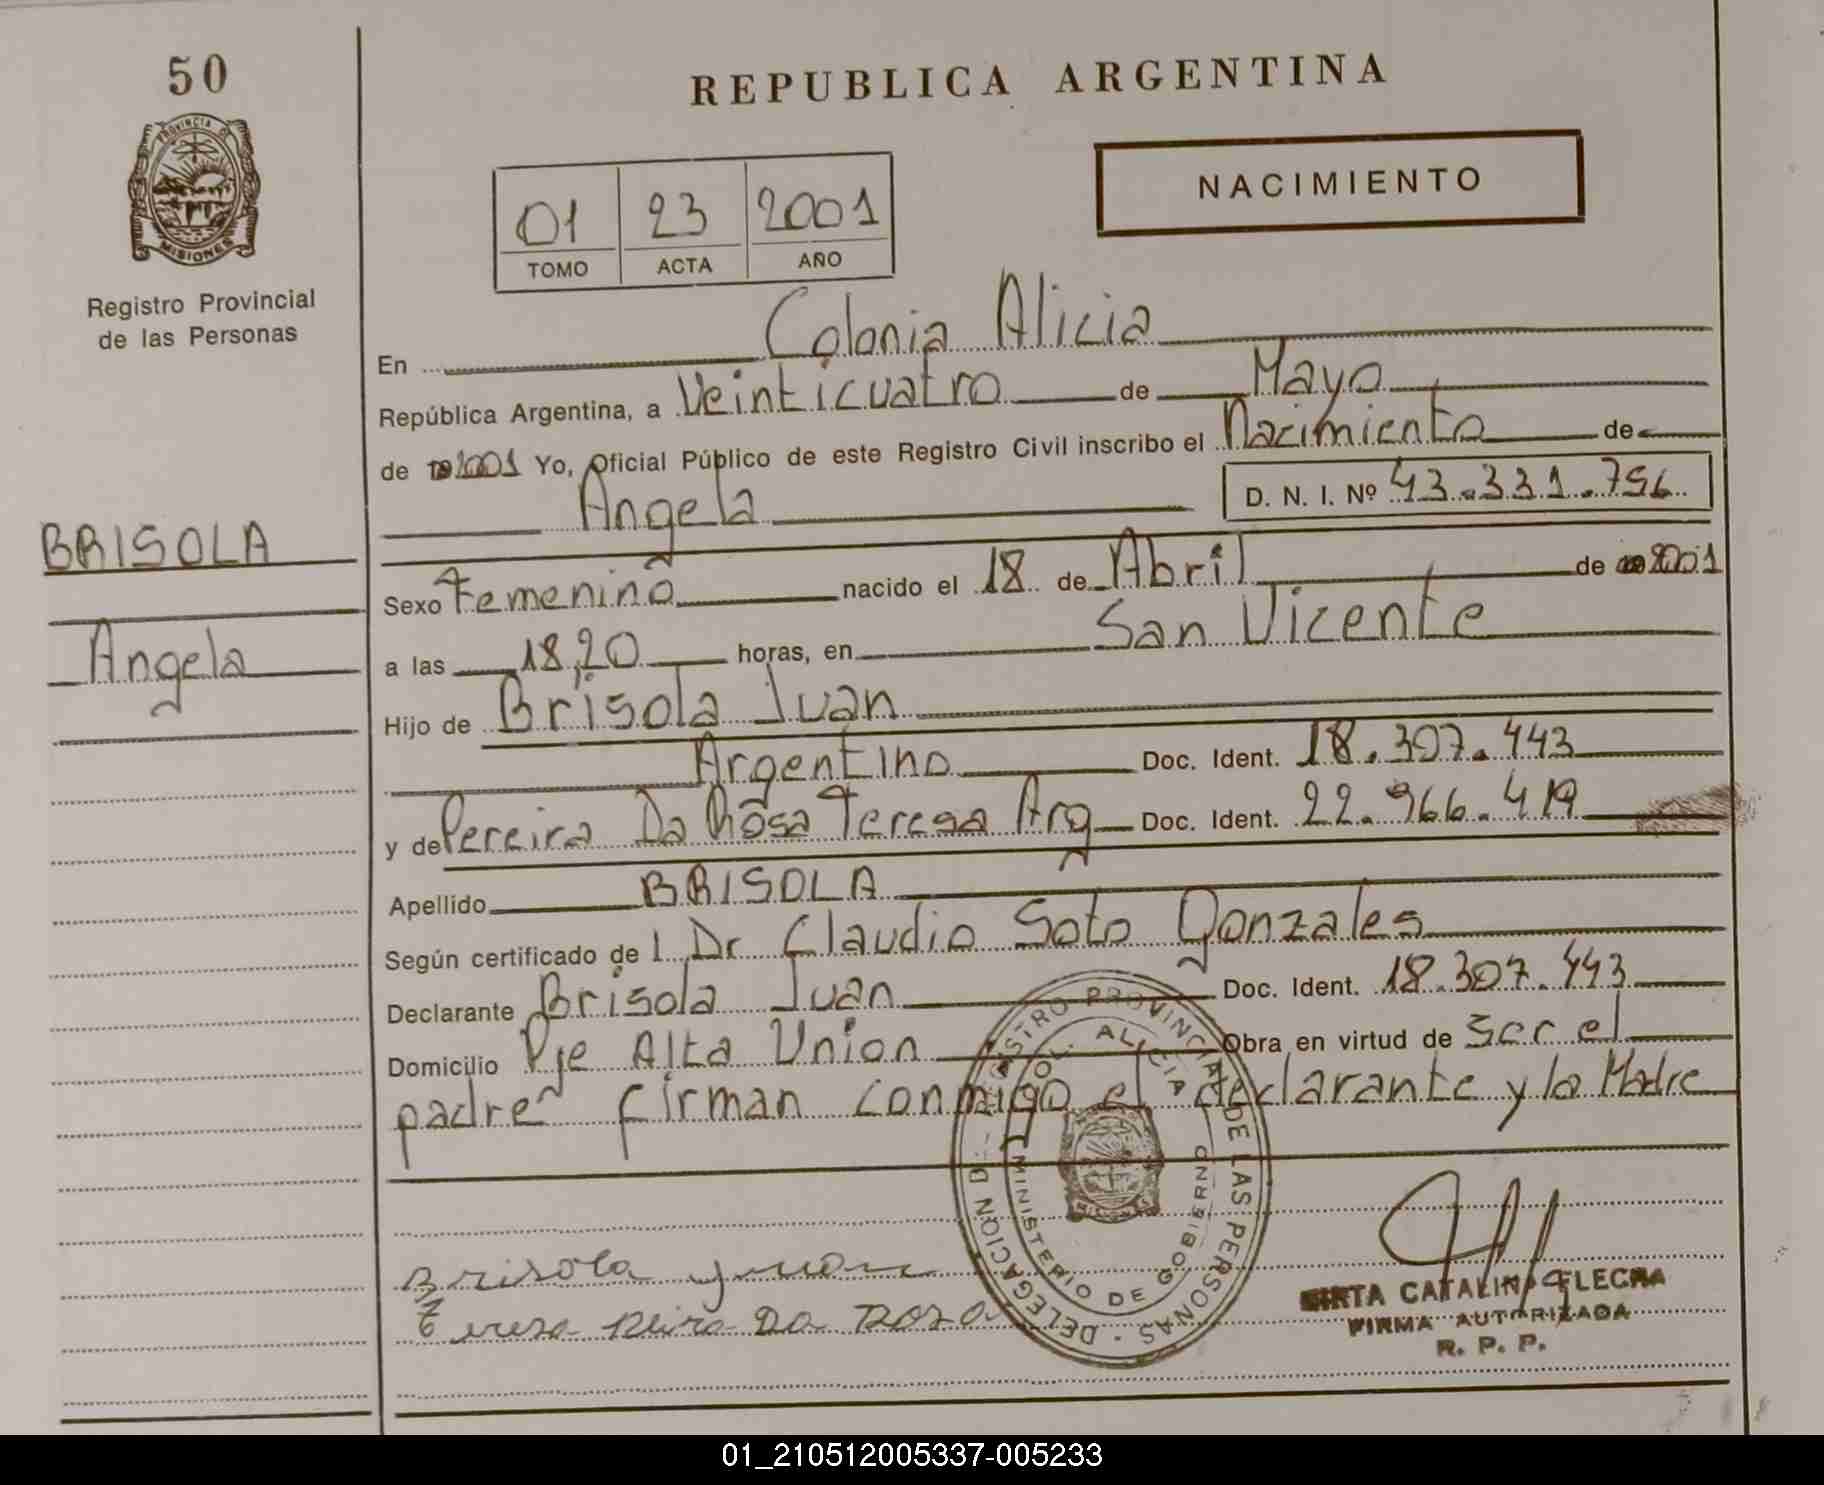 50
PROVINCIA DE
MISIONES
Registro Provincial
de las Personas
BRISOLA
Angela
REPUBLICA ARGENTINA
NACIMIENTO
01 23 2001
TOMO ACTA AÑO
En Colonia Alicia
República Argentina, a Veinticuatro de Mayo
de 2001 Yo, Oficial Público de este Registro Civil inscribo el Nacimiento de
Angela D. N. I. Nº 43.331.756
Sexo Femenino nacido el 18 de Abril de 2001
a las 18,20 horas, en San Vicente
Hijo de Brisola Juan
Argentino Doc. Ident. 18.307.443
y de Pereira Da Rosa Teresa Arg Doc. Ident. 22.966.419
Apellido BRISOLA
Según certificado de l Dr Claudio Soto Gonzales
Declarante Brisola Juan Doc. Ident. 18.307.443
Domicilio Pje Alta Union Obra en virtud de Ser el
padre firman conmigo el declarante y la Madre
REGISTRO PROVINCIAL DE LAS PERSONAS - DELEGACION D
COL. ALICIA
MINISTERIO DE GOBIERNO
Brisola Juan
MIRTA CATALINA FLECHA
FIRMA AUTORIZADA
R. P. P.
01_210512005337-005233